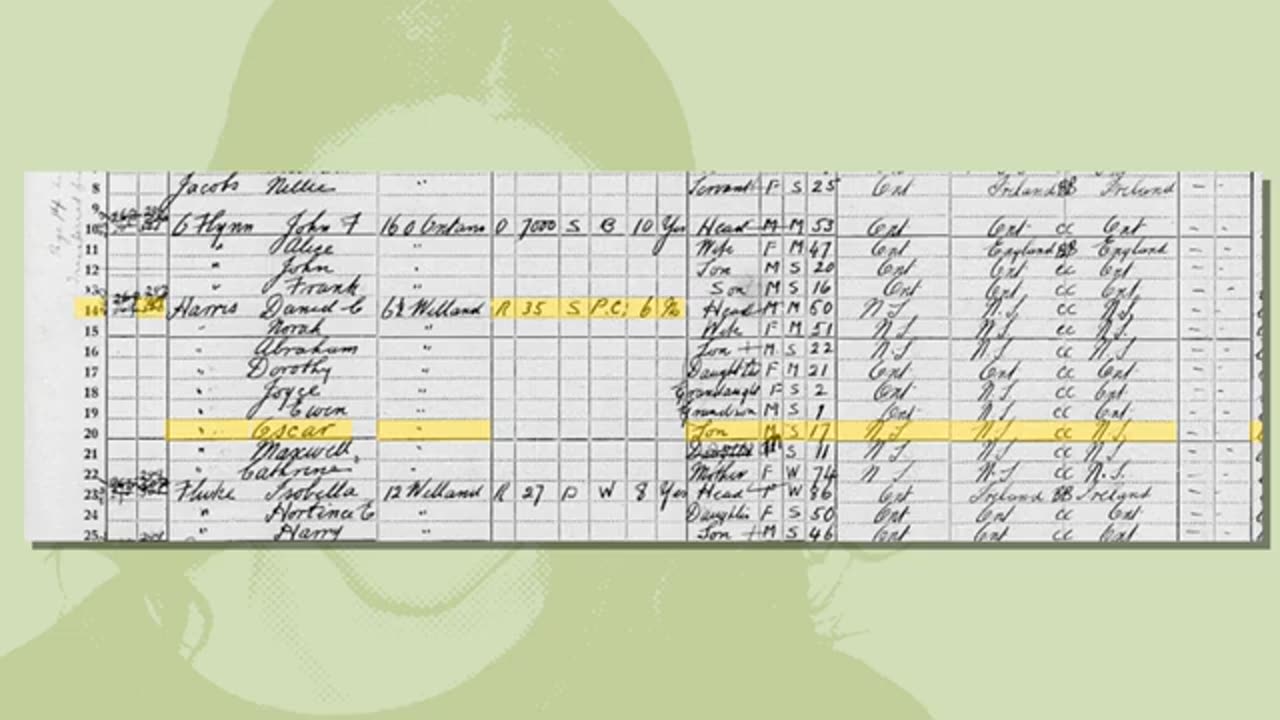 8 Jacobs Nellie " Servant F S 25 Ont Ireland Ireland - -
9
10 O'Flynn John F 160 Ontario O 7000 S B 10 Yes Head M M 53 Ont Ont cc Ont - -
11 " Alice " Wife F M 47 Ont England England - -
12 " John " Son M S 20 Ont Ont cc Ont - -
13 " Frank " Son M S 16 Ont Ont cc Ont - -
14 Harris Daniel C Welland R 35 S P.C. 6 Head M M 50 N.S N.S cc N.S - -
15 " Norah " Wife F M 51 N.S N.S cc N.S - -
16 " Abraham " Son M S 22 N.S N.S cc N.S - -
17 " Dorothy Daughter F M 21 Ont Ont cc Ont - -
18 " Joyce " Grandaught F S 2 Ont N.S cc Ont - -
19 " Ewin " Grandson M S 1 Ont N.S cc Ont - -
20 " Oscar " Son M S 17 N.S N.S cc N.S - -
21 " Maxwell " S 11 N.S N.S cc N.S - -
22 " Cathrine " Mother F W 74 N S N.S cc N.S. - -
23 Fluke Isobella 12 Welland R 27 D W 8 Yes Head F W 86 Ont Ireland Ireland - -
24 " Hortince E " Daughter F S 50 Ont Ont cc Ont - -
25 " Harry " Son M S 46 Ont Ont cc Ont - -